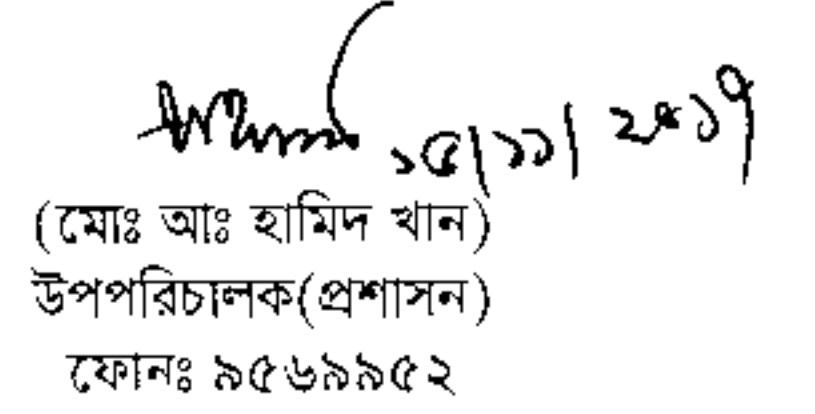 ১৫/১১/২০১৭
(মোঃ আঃ হামিদ খান)
উপপরিচালক(প্রশাসন)
ফোনঃ ৯৫৬৯৯৫২